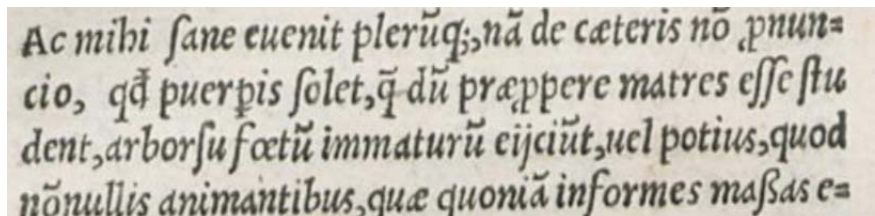 Ac mihi ſane euenit plerũq;,nã de cæteris nõ ꝓnun=
cio, qđ puerꝑis ſolet,q̃ dũ præꝓpere matres eſſe ſtu
dent,arborſu fœtũ immaturũ eijciũt,uel potius,quod
nõnullis animantibus,quæ quoniã informes maſſas e=